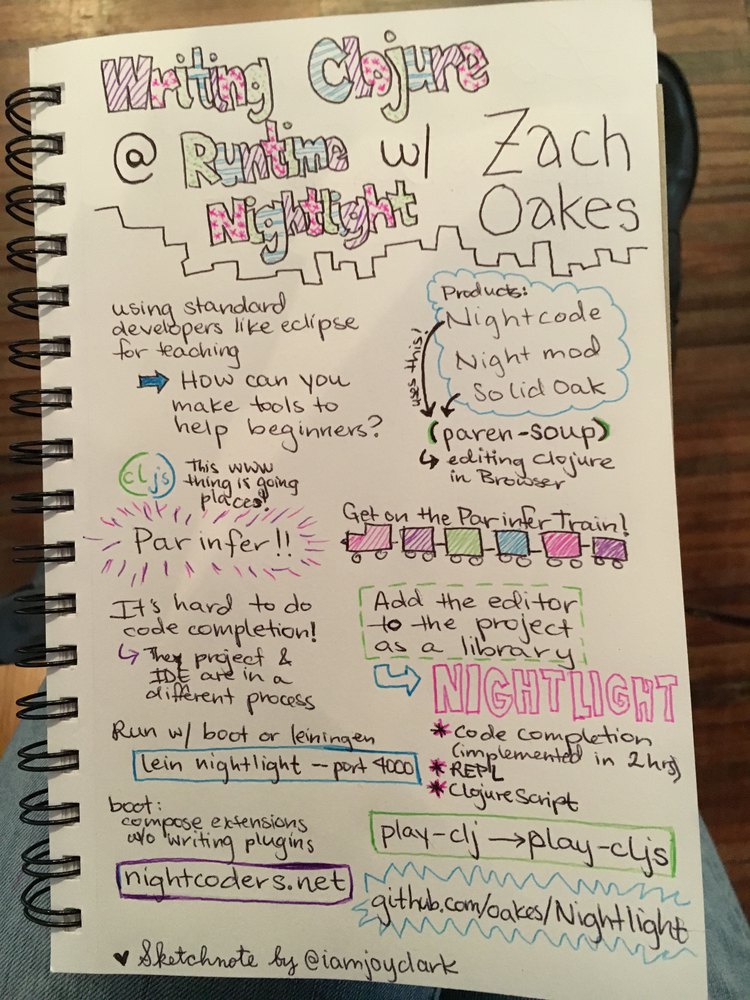 Writing Clojure
@ Runtime w/ Zach
Nightlight Oakes
using standard
developers like eclipse
for teaching
How can you
make tools to
help beginners?
Products:
Nightcode
Night mod
Solid Oak
uses this!
(paren-soup)
editing clojure
in Browser
cljs
This www
thing is going
places!
Parinfer!!
Get on the Parinfer Train!
It's hard to do
code completion!
They project &
IDE are in a
different process
Add the editor
to the project
as a library
NIGHTLIGHT
* code completion
(implemented in 2 hrs)
* REPL
* ClojureScript
Run w/ boot or leiningen
lein nightlight --port 4000
boot:
compose extensions
w/o writing plugins
nightcoders.net
play-clj → play-cljs
github.com/oakes/Nightlight
♥ Sketchnote by @iamjoyclark